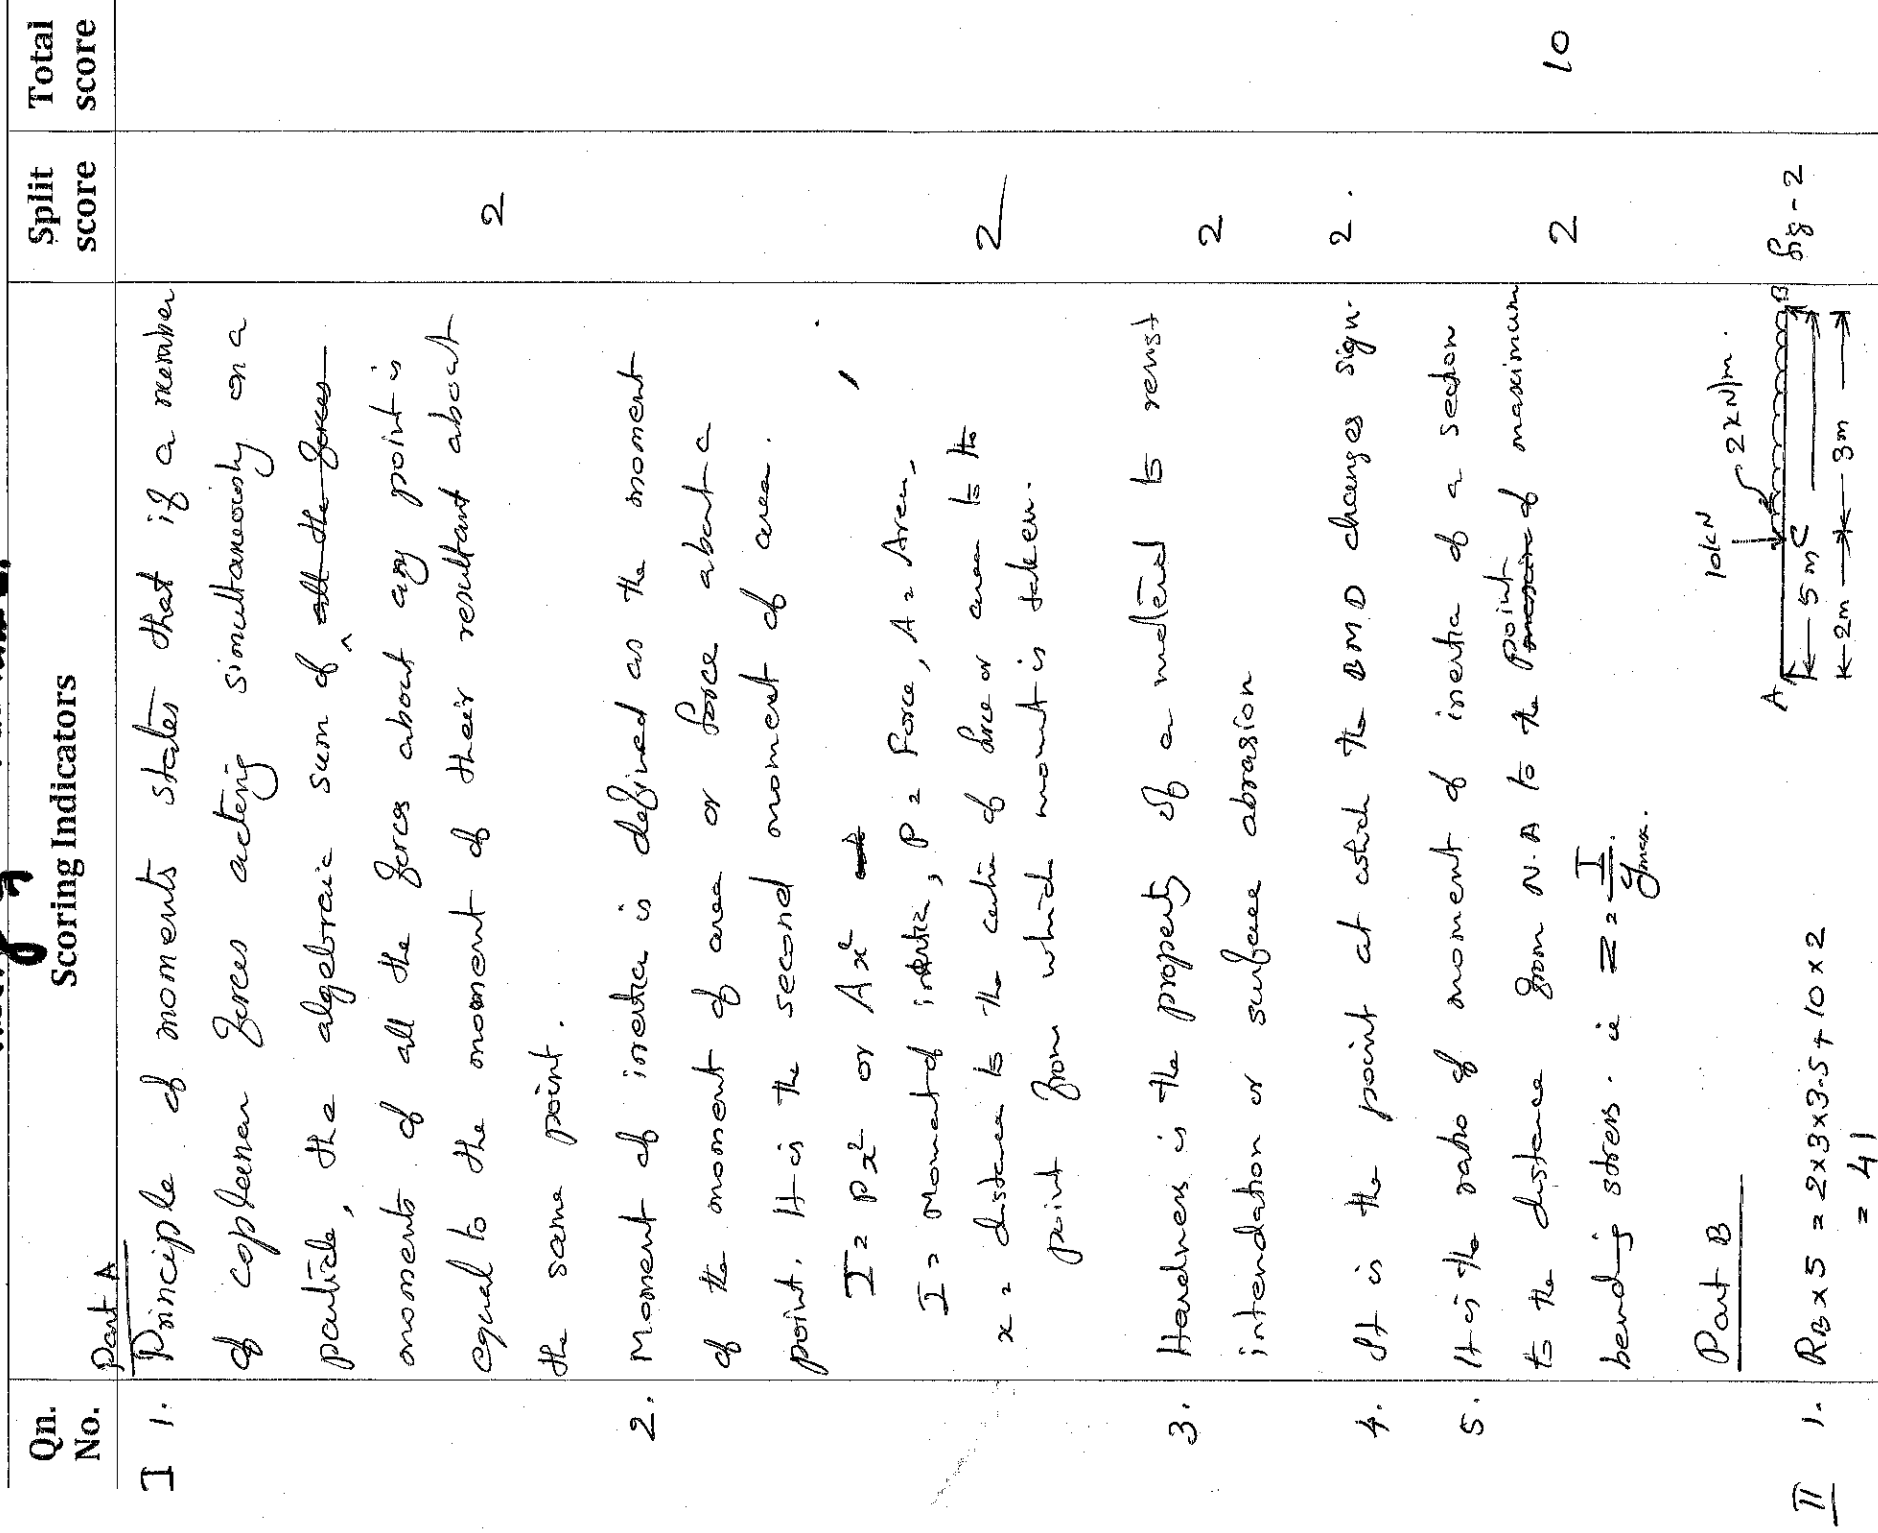 Qn. No. Scoring Indicators Split score Total score
Part A
I 1. Principle of moments states that if a member
of coplenar forces acting simultaneously on a
particle, the algebraic sum of ^ all the forces
moments of all the forces about any point is
equal to the moment of their resultant about
the same point. 2
2. Moment of inertia is defined as the moment
of the moment of area or force about a
point. It is the second moment of area.
I = Px² or Ax²
I = Moment of intertia, P = Force, A = Area,
x = distance to the centre of force or area to the
point from which moment is taken. 2
3. Hardness is the property of a material to resist
intendation or surface abrasion 2
4. It is the point at which the BMD changes sign. 2.
5. It is the ratio of moment of inertia of a section
to the distance from N.A to the point of maximum
bending stress. ie Z = I/ymax. 2 10
Part B
II 1. RB x 5 = 2x3x3.5+10x2
= 41
10kN
2kN/m.
A C B
5m
2m 3m
fig-2